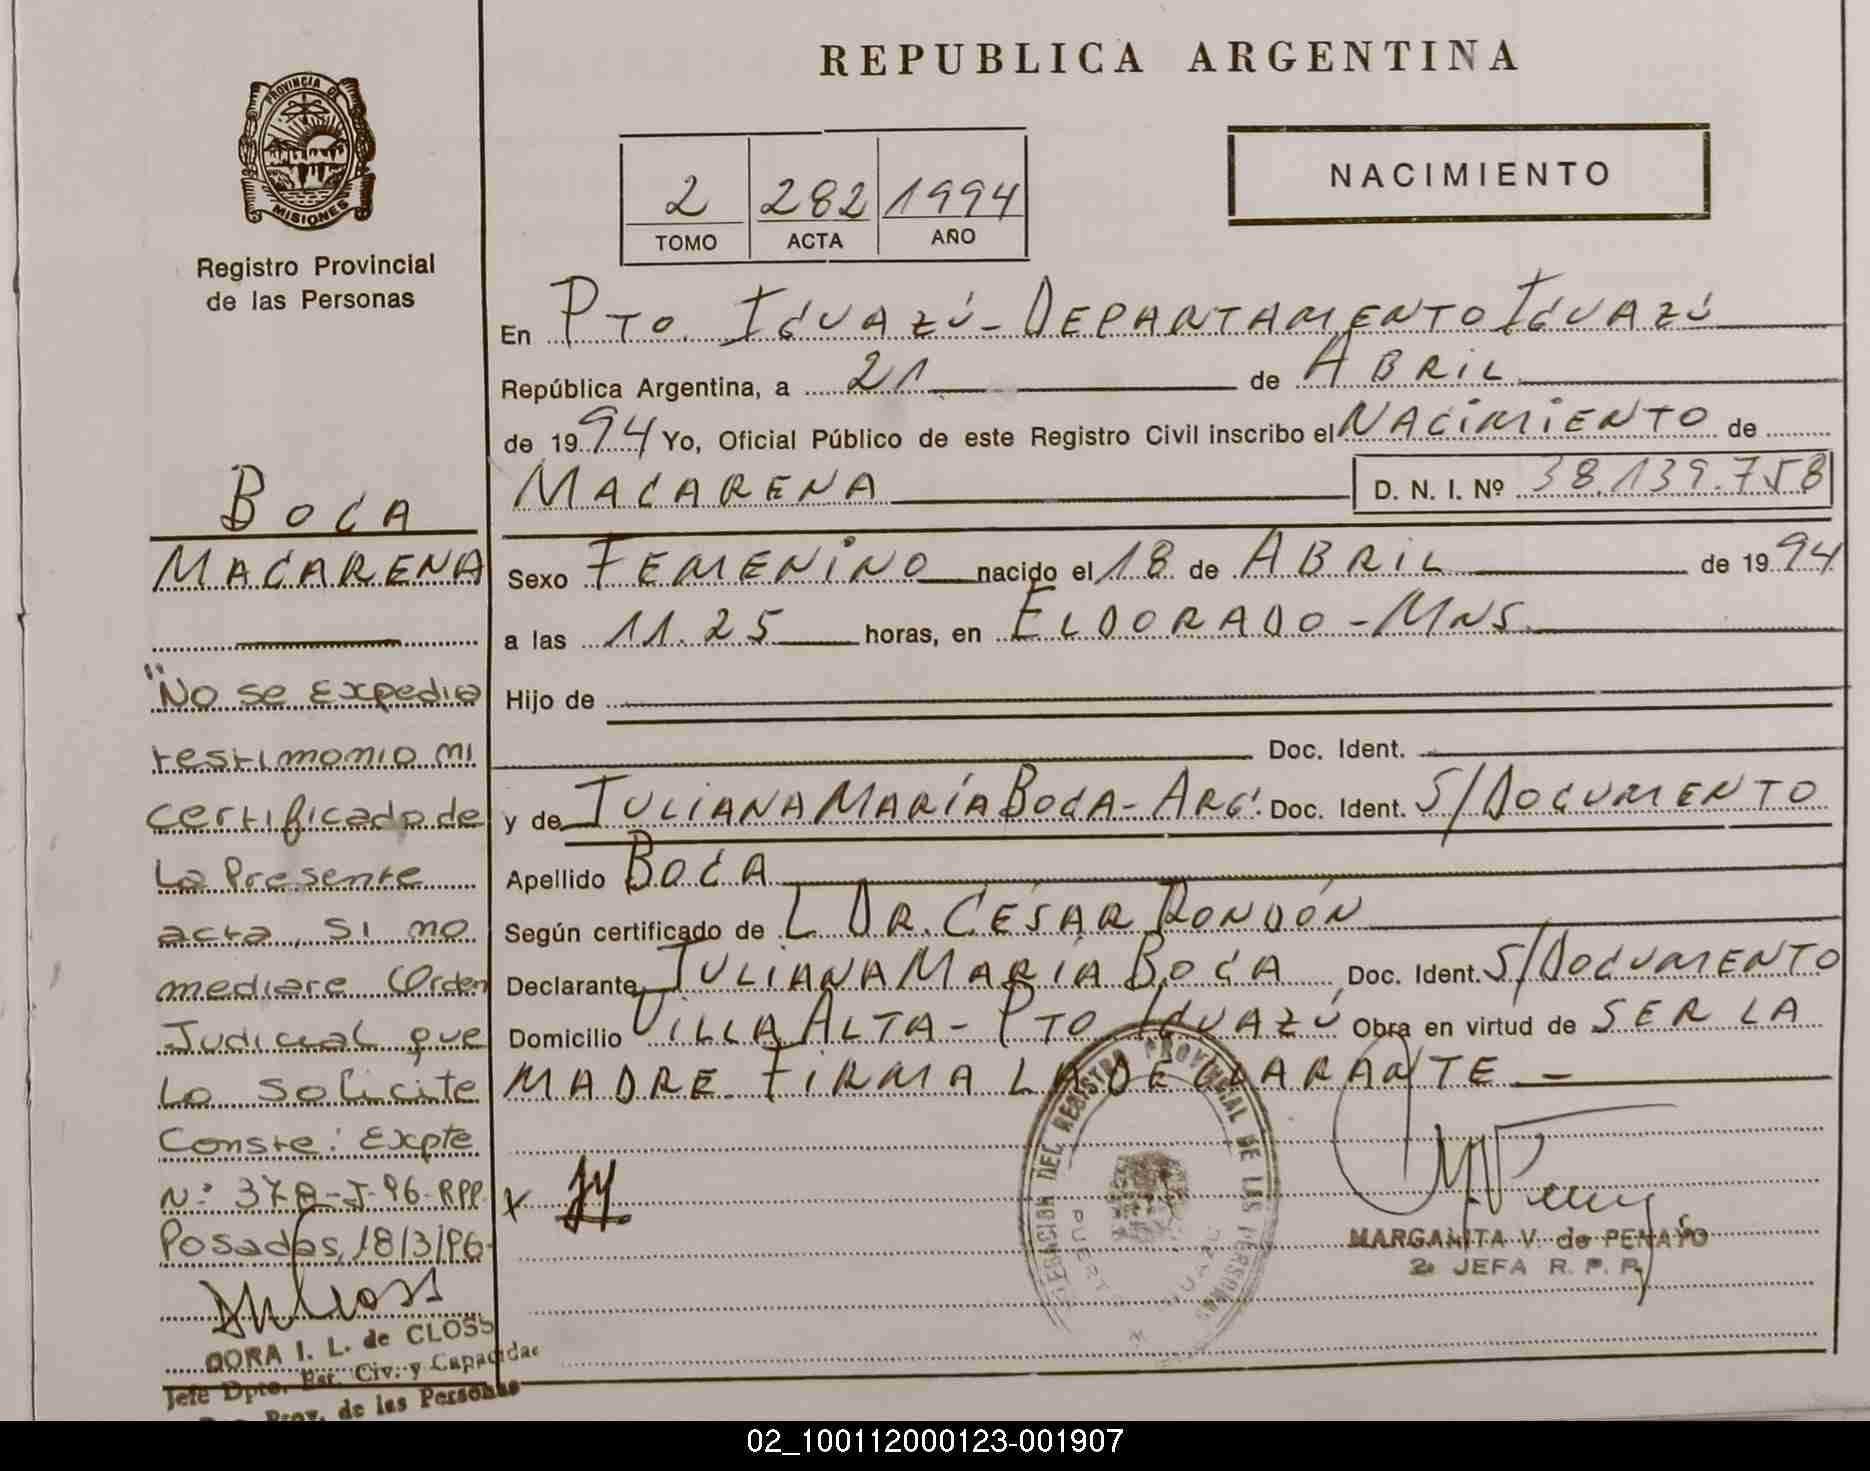 REPUBLICA ARGENTINA
PROVINCIA DE
MISIONES
Registro Provincial
de las Personas
2 282 1994
TOMO ACTA AÑO
NACIMIENTO
En PTO. IGUAZÚ - DEPARTAMENTO IGUAZÚ
República Argentina, a 21 de ABRIL
de 1994 Yo, Oficial Público de este Registro Civil inscribo el NACIMIENTO de
MACARENA D. N. I. Nº 38.139.758
Sexo FEMENINO nacido el 18 de ABRIL de 1994
a las 11.25 horas, en ELDORADO - MNS.
Hijo de
Doc. Ident.
y de JULIANA MARÍA BOCA - ARG. Doc. Ident. S/DOCUMENTO
Apellido BOCA
Según certificado de L DR. CÉSAR RONDÓN
Declarante JULIANA MARÍA BOCA Doc. Ident. S/DOCUMENTO
Domicilio VILLA ALTA - PTO IGUAZÚ Obra en virtud de SER LA
MADRE. FIRMA LA DECLARANTE -
X
MARGARITA V. de PENAYO
2a JEFA R. P. P.
DEL REGISTRO PROVINCIAL DE LAS PERSONAS
BOCA
MACARENA
"No se expedira
testimonio ni
certificado de
La Presente
acta, si no
mediare Orden
Judicial que
Lo Solicite
Conste: Expte
N: 378-J-96-RPP.
Posadas, 18/3/96-
DORA I. L. de CLOSS
Jefe Dpto. Est. Civ. y Capacidad
Prov. de las Personas
02_100112000123-001907